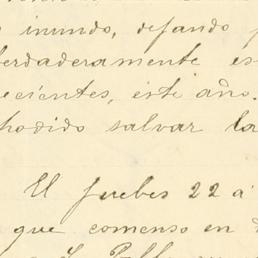 inundo, dejando
verdaderamente es
ecientes, este año.
hodido salvar la
El juebes 22 á
que comenso en